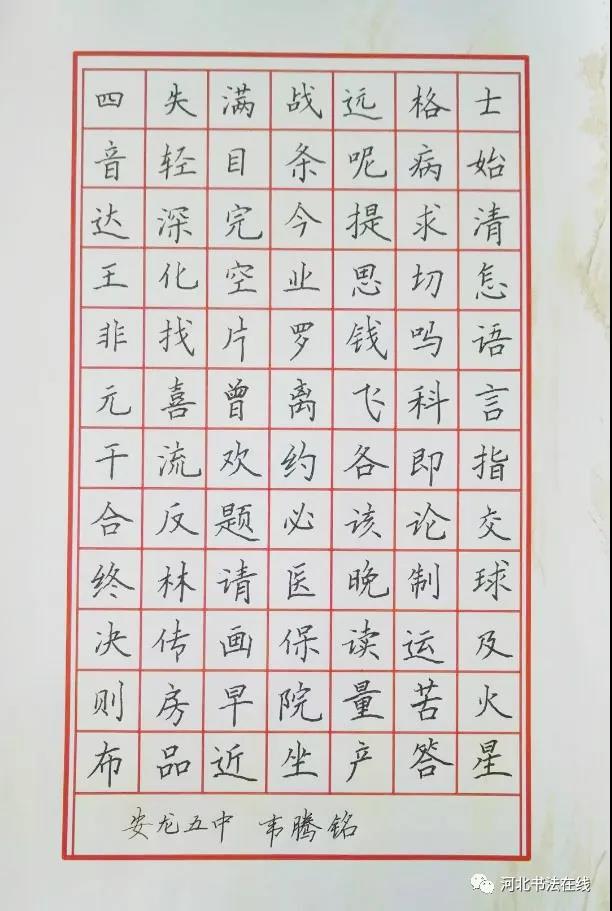 四失满战远格士
音轻目条呢病始
达深完今提求清
王化空业思切怎
非找片罗钱吗语
元喜曾离飞科言
干流欢约各即指
合反题必该论交
终林请医晚制球
决传画保读运及
则房早院量苦火
布品近坐产答星
安龙五中 韦腾铭
河北书法在线